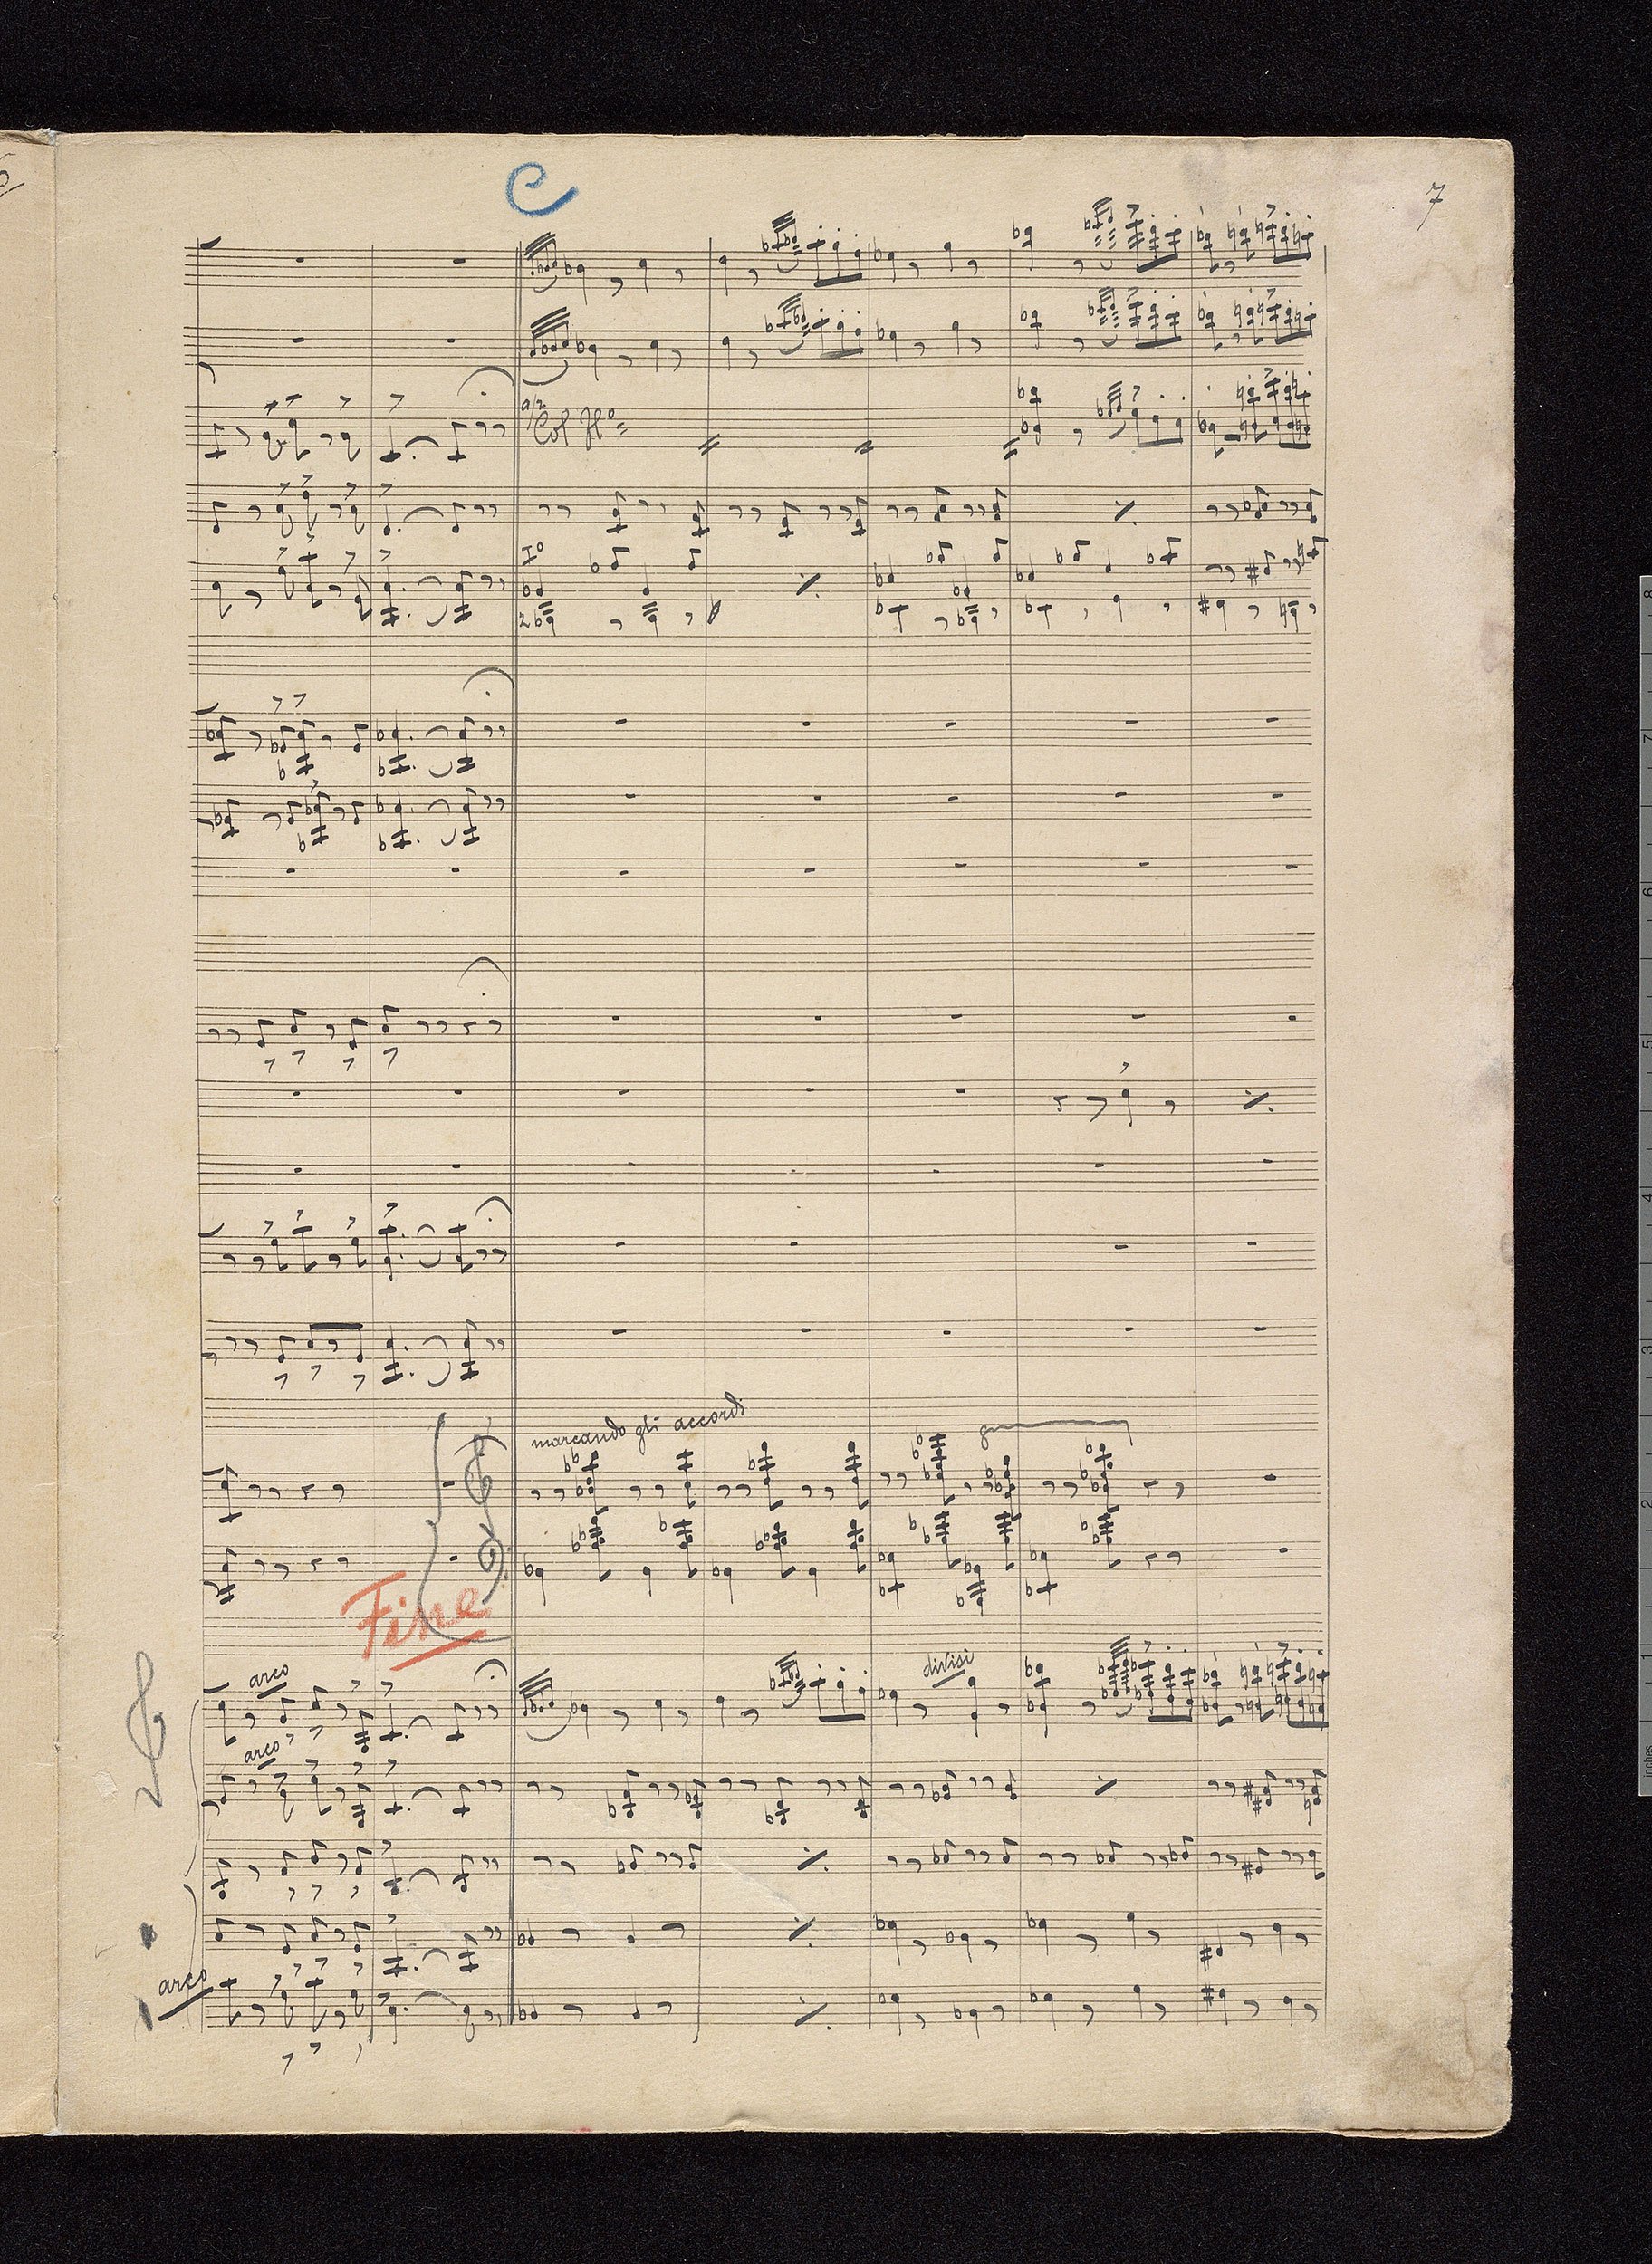 6
7
C
a/2
Col Fl º
Iº
2
marcando gli accordi
8va
Fine
arco
divisi
arco
arco
8
7
6
5
4
3
2
1
inches